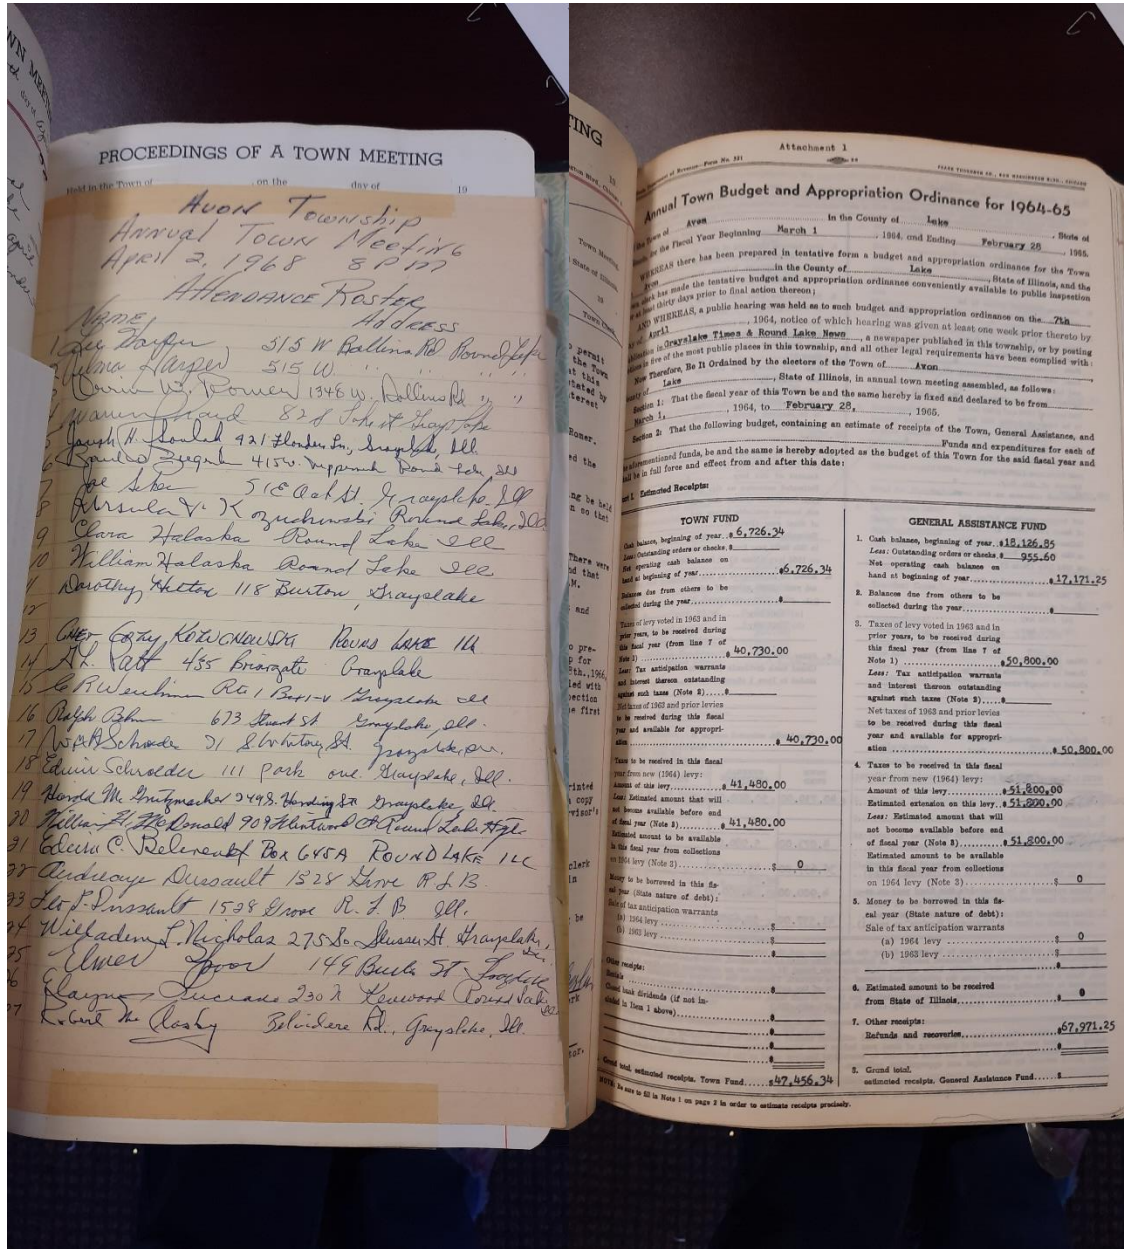 PROCEEDINGS OF A TOWN MEETING
Held in the Town of , on the day of 19
AVON TOWNSHIP
ANNUAL TOWN MEETING
APRIL 2, 1968 8 PM
ATTENDANCE ROSTER
NAME ADDRESS
Harper 515 W Rollins Rd Round Lake
Harper 515 W. " " " "
1348 W. Rollins Rd " "
Warren 828 Lake St Grayslake
Joseph H. 421 Ln, Grayslake, Ill
415 W. Round Lake, Ill
7 Joe 51 E Oak St. Grayslake, Ill
8 Ursula V. Kozuchowski Round Lake, Ill
9 Clara Halaska Round Lake Ill
10 William Halaska Round Lake Ill
11 Dorothy Helton 118 Burton, Grayslake
12
13 ROUND LAKE ILL
14 A.L. 435 Briargate Grayslake
15 Rte 1 Box Grayslake Ill
16 Ralph 673 Stuart St Grayslake, Ill.
17 Schroeder 21 S Whitney St. Grayslake,
18 Edwin Schroeder 111 Park ave. Grayslake, Ill.
19 Harold M. 249 S. Harding St. Grayslake, Ill
20 William H. McDonald 909 Ct Round Lake Hgts
21 Edwin C. Box 645A ROUND LAKE ILL
22 Dussault 1528 Grove R L B.
23 Leo P. Dussault 1528 Grove R. L. B Ill.
24 L. Nicholas 275 So. Slusser St. Grayslake,
25 Elmer 149 St Grayslake
26 Elayne Luciano 230 N Kenwood Round Lake
27 Robert Belvidere Rd., Grayslake, Ill.
Attachment 1
Annual Town Budget and Appropriation Ordinance for 1964-65
Town of Avon in the County of Lake, State of
for the Fiscal Year Beginning March 1, 1964, and Ending February 28, 1965.
WHEREAS there has been prepared in tentative form a budget and appropriation ordinance for the Town
Avon in the County of Lake, State of Illinois, and the
has made the tentative budget and appropriation ordinance conveniently available to public inspection
at least thirty days prior to final action thereon;
AND WHEREAS, a public hearing was held as to such budget and appropriation ordinance on the 7th
of April, 1964, notice of which hearing was given at least one week prior thereto by
in Grayslake Times & Round Lake News, a newspaper published in this township, or by posting
of the most public places in this township, and all other legal requirements have been complied with:
Now Therefore, Be It Ordained by the electors of the Town of Avon
County of Lake, State of Illinois, in annual town meeting assembled, as follows:
Section 1: That the fiscal year of this Town be and the same hereby is fixed and declared to be from
March 1, 1964, to February 28, 1965.
Section 2: That the following budget, containing an estimate of receipts of the Town, General Assistance, and
Funds and expenditures for each of
aforementioned funds, be and the same is hereby adopted as the budget of this Town for the said fiscal year and
shall be in full force and effect from and after this date:
Estimated Receipts:
TOWN FUND
Cash balance, beginning of year $6,726.34
Less: Outstanding orders or checks $
Net operating cash balance on
hand at beginning of year $6,726.34
Balances due from others to be
collected during the year $
Taxes of levy voted in 1963 and in
prior years, to be received during
this fiscal year (from line 7 of
Note 1) $40,730.00
Less: Tax anticipation warrants
and interest thereon outstanding
against such taxes (Note 2) $
Net taxes of 1963 and prior levies
to be received during this fiscal
year and available for appropri-
ation $40,730.00
Taxes to be received in this fiscal
year from new (1964) levy:
Amount of this levy $41,480.00
Less: Estimated amount that will
not become available before end
of fiscal year (Note 3) $41,480.00
Estimated amount to be available
in this fiscal year from collections
on 1964 levy (Note 3) $ 0
Money to be borrowed in this fis-
cal year (State nature of debt):
Sale of tax anticipation warrants
(a) 1964 levy $
(b) 1963 levy $
Other receipts:
Rentals $
Closed bank dividends (if not in-
cluded in Item 1 above) $
Grand total, estimated receipts, Town Fund $47,456.34
NOTE: Be sure to fill in Note 1 on page 2 in order to estimate receipts precisely.
GENERAL ASSISTANCE FUND
1. Cash balance, beginning of year $18,126.85
Less: Outstanding orders or checks $ 955.60
Net operating cash balance on
hand at beginning of year $17,171.25
2. Balances due from others to be
collected during the year $
3. Taxes of levy voted in 1963 and in
prior years, to be received during
this fiscal year (from line 7 of
Note 1) $50,800.00
Less: Tax anticipation warrants
and interest thereon outstanding
against such taxes (Note 2) $
Net taxes of 1963 and prior levies
to be received during this fiscal
year and available for appropri-
ation $50,800.00
4. Taxes to be received in this fiscal
year from new (1964) levy:
Amount of this levy $51,800.00
Estimated extension on this levy $51,800.00
Less: Estimated amount that will
not become available before end
of fiscal year (Note 3) $51,800.00
Estimated amount to be available
in this fiscal year from collections
on 1964 levy (Note 3) $ 0
5. Money to be borrowed in this fis-
cal year (State nature of debt):
Sale of tax anticipation warrants
(a) 1964 levy $ 0
(b) 1963 levy $
6. Estimated amount to be received
from State of Illinois $ 0
7. Other receipts:
Refunds and recoveries $67,971.25
8. Grand total,
estimated receipts, General Assistance Fund $